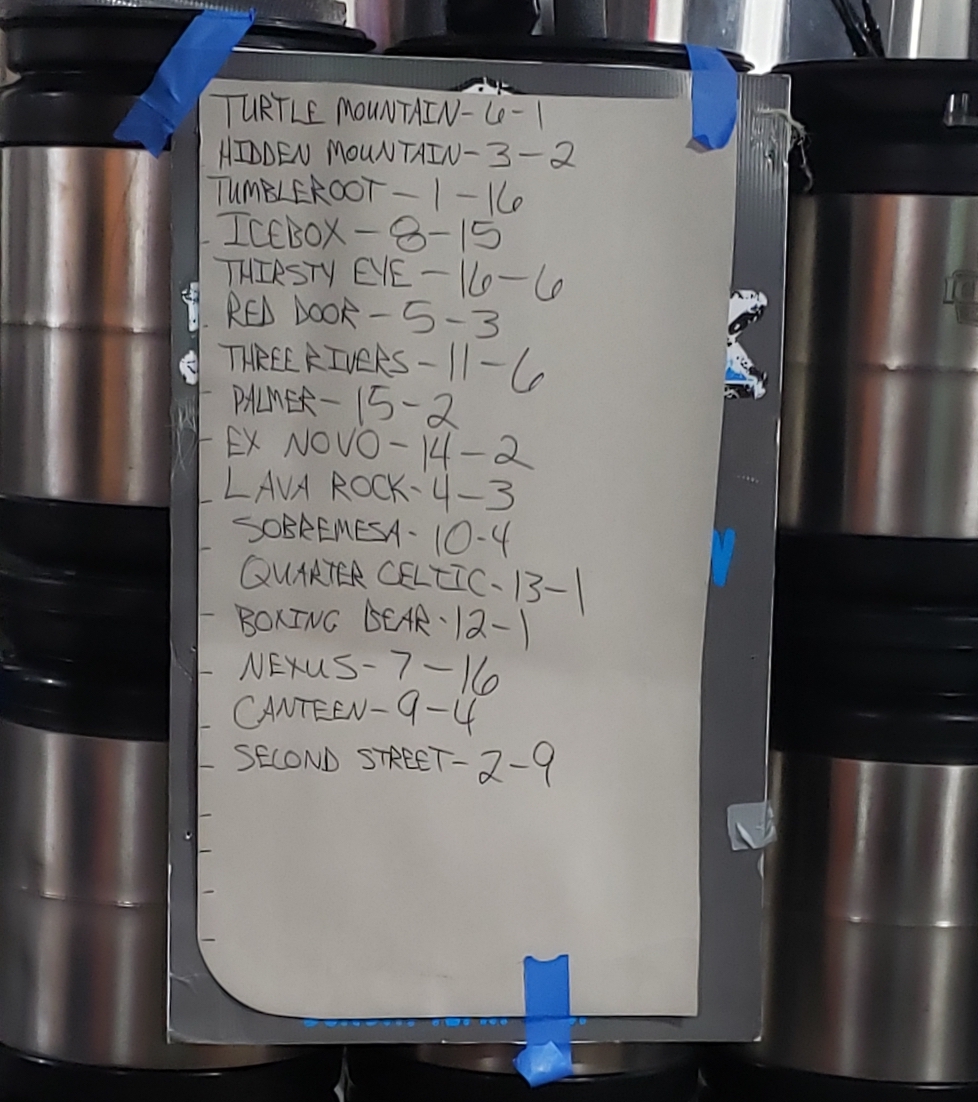 TURTLE MOUNTAIN-6-1
HIDDEN MOUNTAIN-3-2
TUMBLEROOT-1-16
ICEBOX-8-15
THIRSTY EYE-16-6
RED DOOR-5-3
THREE RIVERS-11-6
PALMER-15-2
EX NOVO-14-2
LAVA ROCK-4-3
SOBREMESA-10-4
QUARTER CELTIC-13-1
BOXING BEAR-12-1
NEXUS-7-16
CANTEEN-9-4
SECOND STREET-2-9